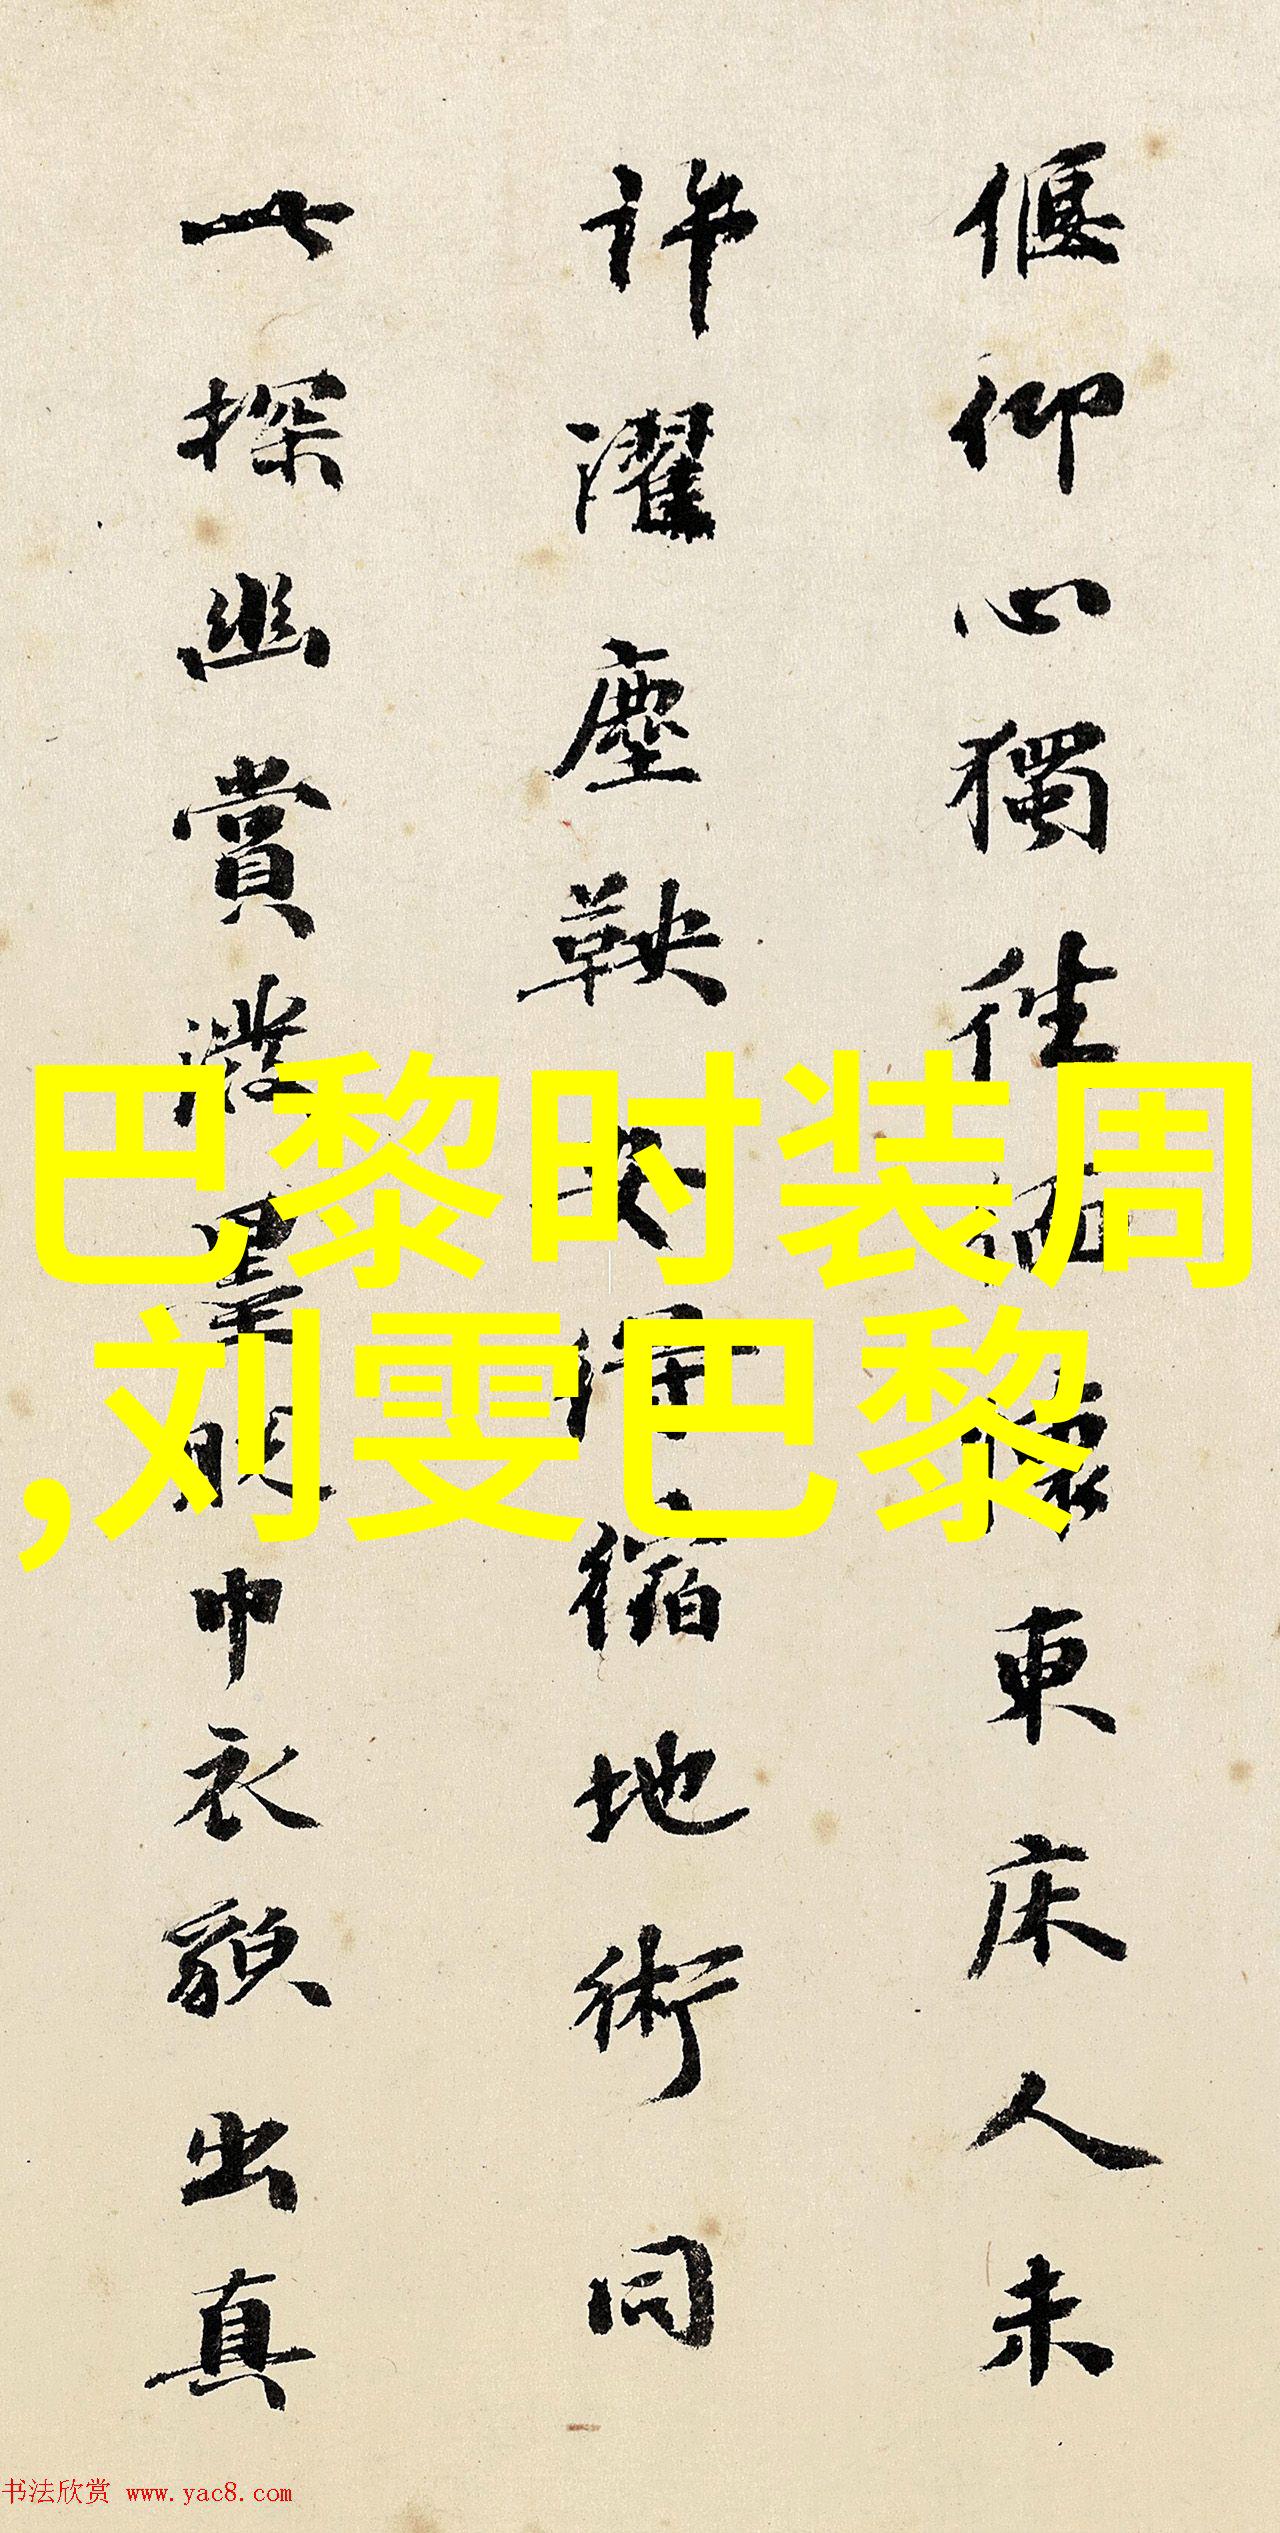 偃仰心獨往 懷東床人未
許濯塵鞅 得縮地術同
此探幽賞潑墨 巾衣貌出真
巴黎时装周
,刘雯巴黎
书法欣赏 www.yac8.com